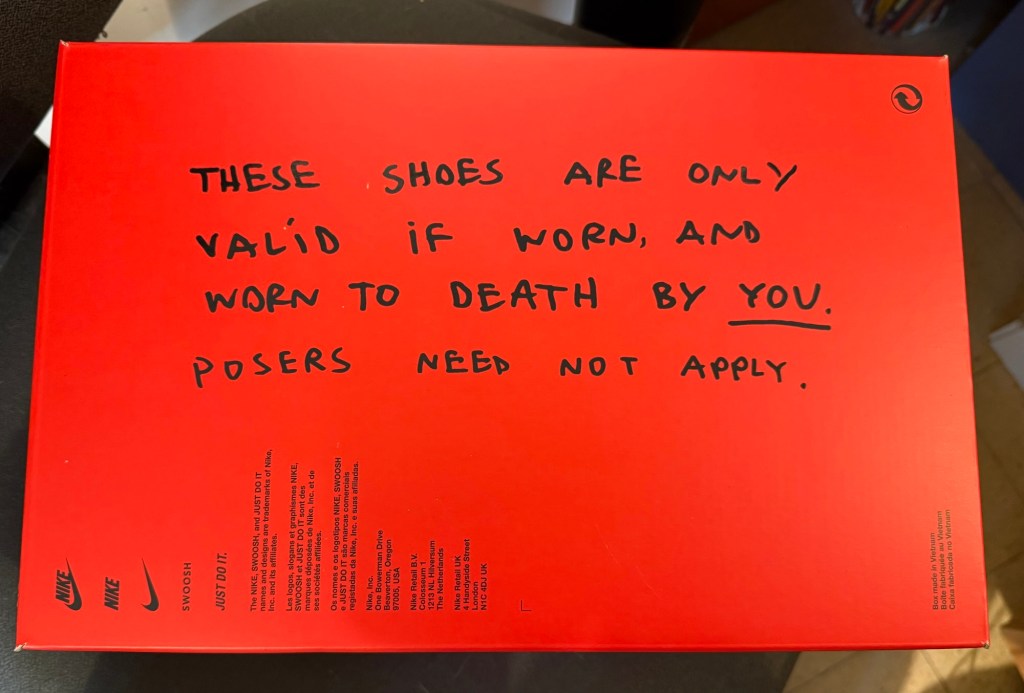 THESE SHOES ARE ONLY
VALiD iF WORN, AND
WORN TO DEATH BY YOU.
POSERS NEED NOT APPLY.
NIKE
NIKE
SWOOSH
JUST DO IT.
The NIKE, SWOOSH, and JUST DO IT
names and designs are trademarks of Nike,
Inc. and its affiliates.
Les logos, slogans et graphismes NIKE,
SWOOSH et JUST DO IT sont des
marques déposées de Nike, Inc. et de
ses sociétés affiliées.
Os nomes e os logotipos NIKE, SWOOSH
e JUST DO IT são marcas comerciais
registadas da Nike, Inc. e suas afiliadas.
Nike, Inc.
One Bowerman Drive
Beaverton, Oregon
97005, USA
Nike Retail B.V.
Colosseum 1
1213 NL Hilversum
The Netherlands
Nike Retail UK
4 Handyside Street
London
N1C 4DJ UK
Box made in Vietnam
Boîte fabriquée au Vietnam
Caixa fabricada no Vietnam